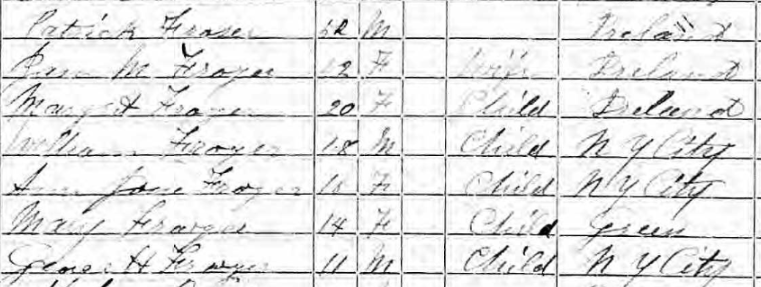 Patrick Fraser 52 M Ireland
M Frazer F Wife Ireland
Margret Frazer 20 F Child Ireland
William Frazer 18 M Child N Y City
Ann Jane Frazer 16 F Child N Y City
Mary Frazer 14 F Child Green
George H Frazer 11 M Child N Y City